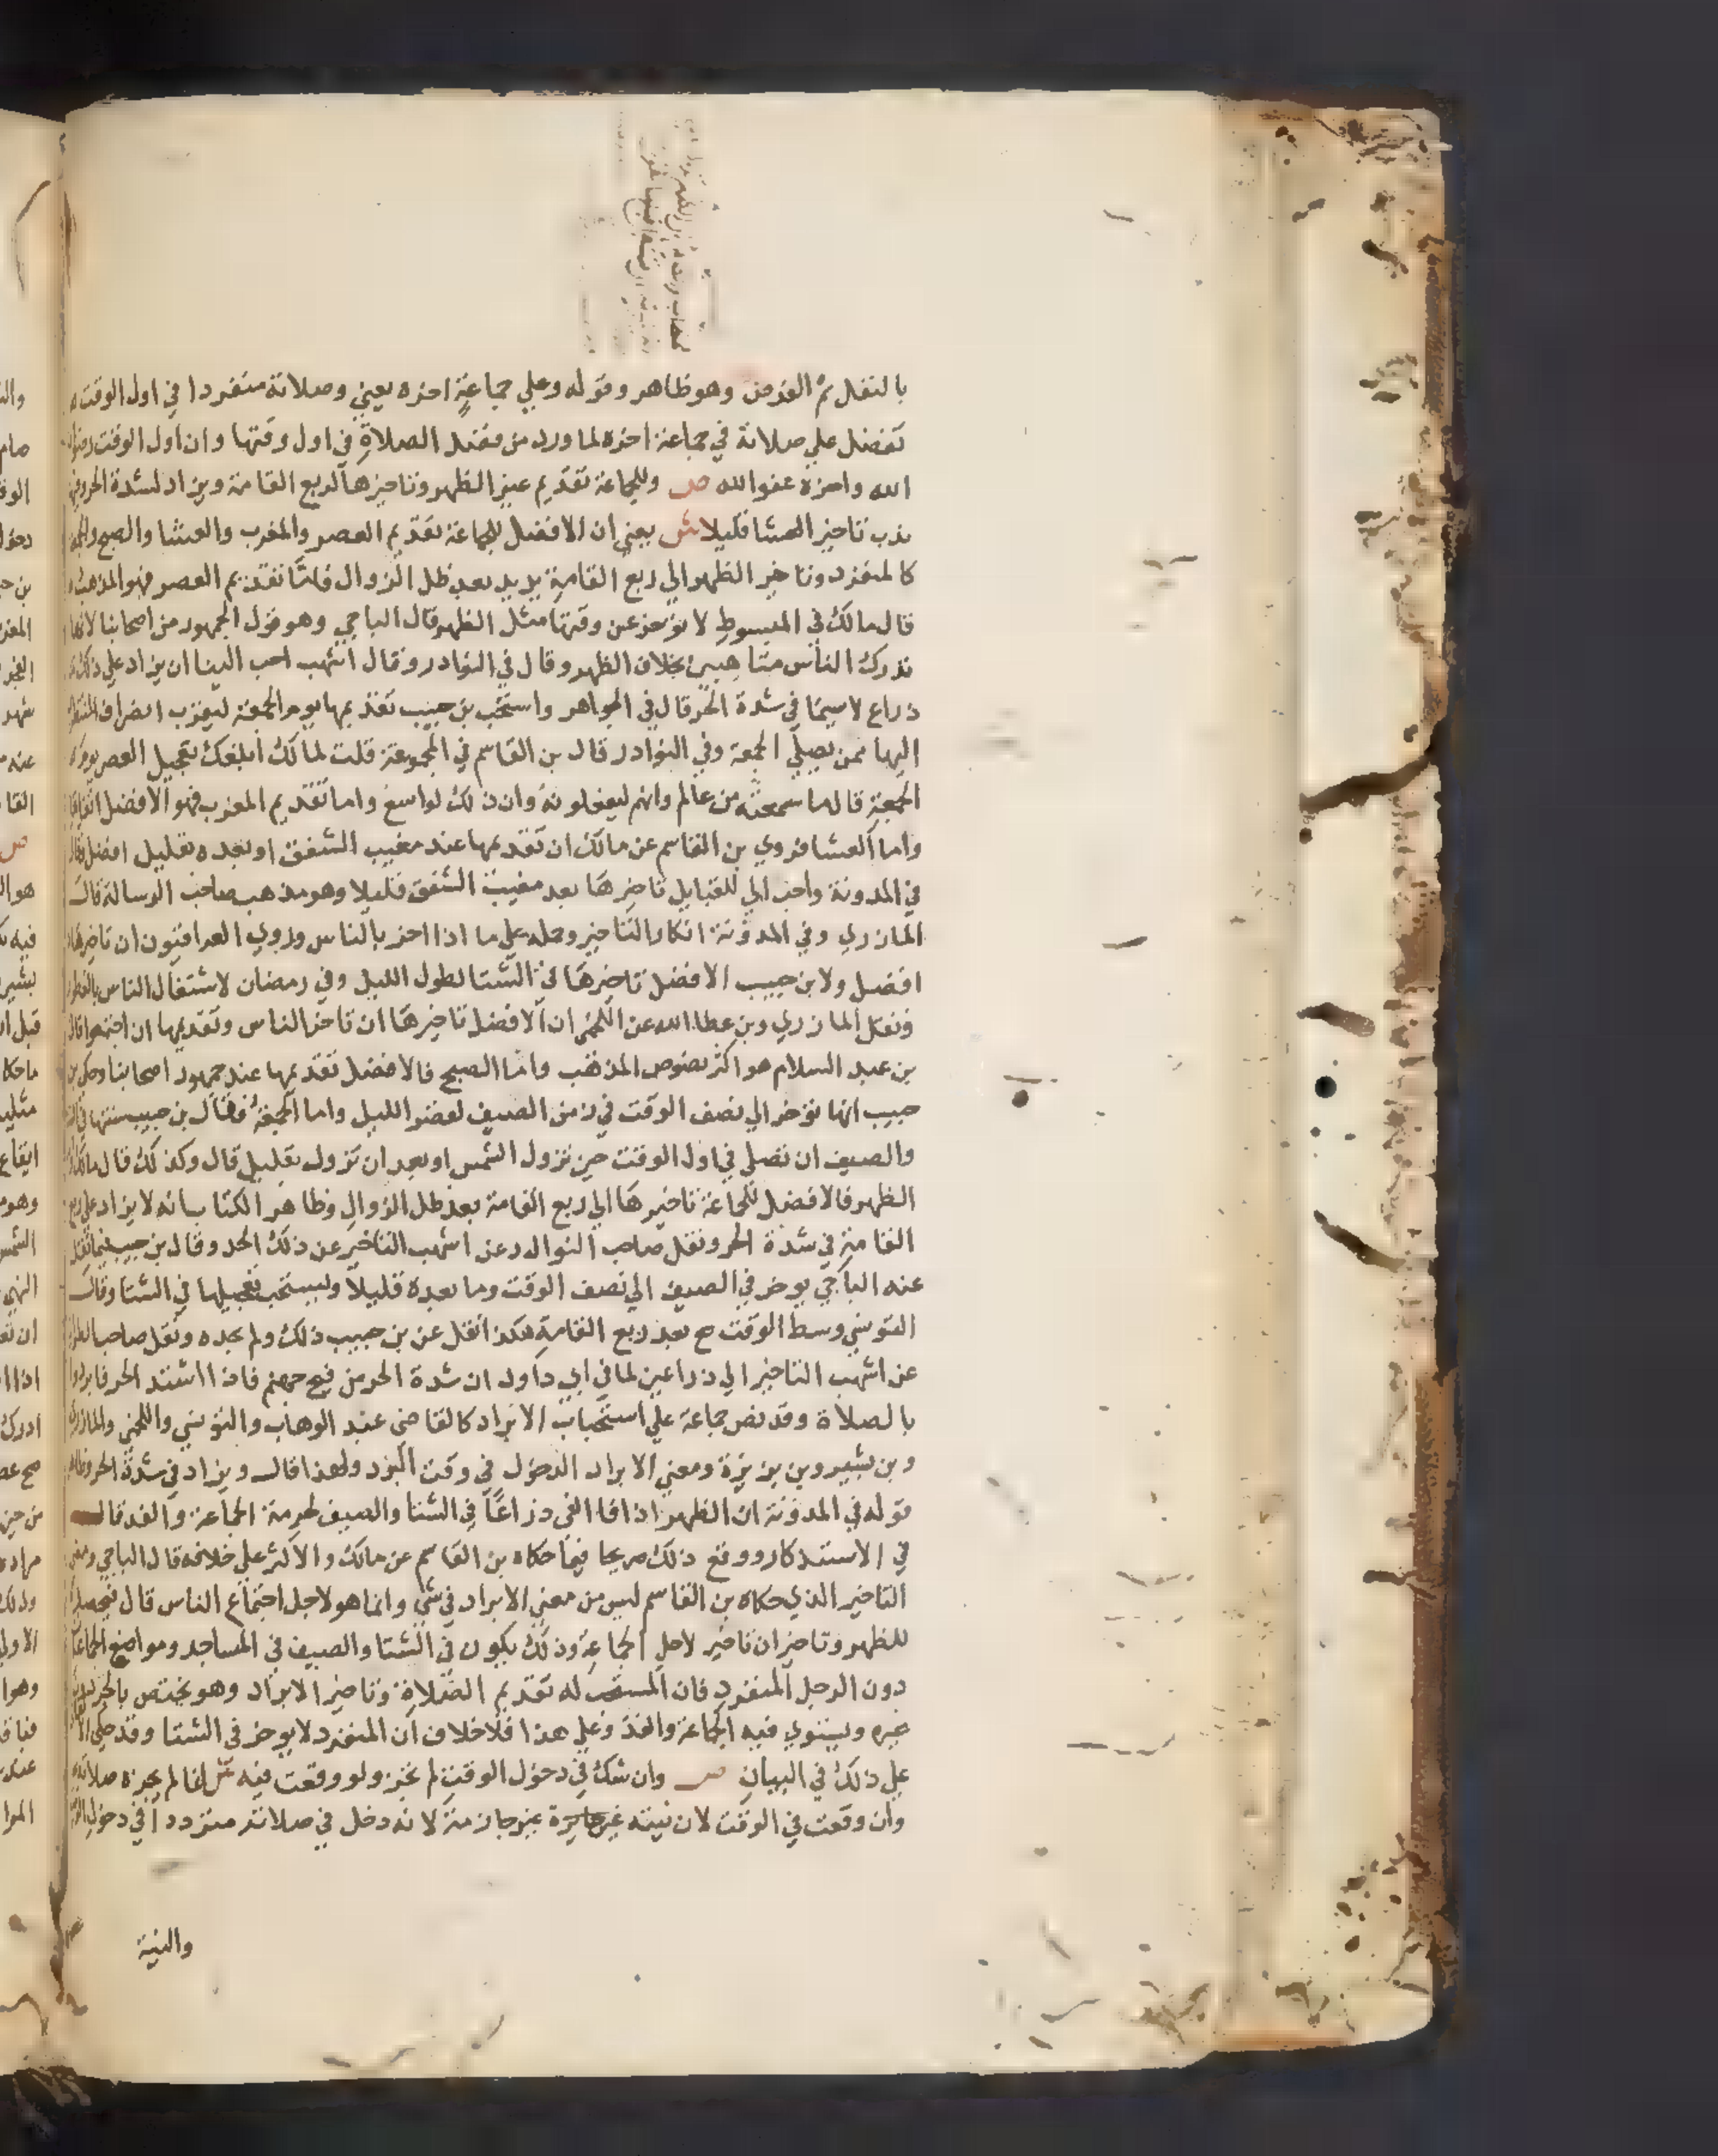 بالنفل ثم الفرض وهو ظاهر وقوله وعلي جماعة اخره يعني وصلاته منفردا في اول الوقت
تفضل علي صلاته في جماعة اخره لما ورد من فضل الصلاة في اول وقتها وان اول الوقت رضوان
الله واخره عفو الله ص وللجماعة تقديم غير الظهر وتاخيرها لربع القامة ويزاد لشدة الحر وفيها
ندب تاخير العشا قليلا ش يعني ان الافضل للجماعة تقديم العصر والمغرب والعشا والصبح والجمعة
كالمنفرد وتاخير الظهر الي ربع القامة يريد بعد ظل الزوال فاما تقديم العصر فهو المذهب
قال مالك في المبسوط لا توخر عن وقتها مثل الظهر قال الباجي وهو قول الجمهور من اصحابنا لانها
تدرك الناس متاهبين بخلاف الظهر وقال في النوادر وقال اشهب احب الينا ان يزاد علي ذلك
ذراع لا سيما في شدة الحر قال في الجواهر واستحب بن حبيب تقديمها يوم الجمعة ليقرب انصراف المنتظر
اليها ممن يصلي الجمعة وفي النوادر قال بن القاسم في المجموعة قلت لمالك ابلغك تعجيل العصر يوم
الجمعة قال ما سمعته من عالم وانهم ليفعلونه وان ذلك لواسع واما تقديم المغرب فهو الافضل اتفاقا
واما العشا فروي بن القاسم عن مالك ان تقديمها عند مغيب الشفق او بعده بقليل افضل وقال
في المدونة واحب الي للقبايل تاخيرها بعد مغيب الشفق قليلا وهو مذهب صاحب الرسالة قال
المازري وفي المدونة انكار التاخير وحمله علي ما اذا اضر بالناس وروي العراقيون ان تاخيرها
افضل ولابن حبيب الافضل تاخيرها في الشتا لطول الليل وفي رمضان لاشتغال الناس بالفطر
ونقل المازري وبن عطا الله عن اللخمي ان الافضل تاخيرها ان تاخر الناس وتقديمها ان اجتمعوا قال
بن عبد السلام هو اكثر نصوص المذهب واما الصبح فالافضل تقديمها عند جمهور اصحابنا وحكي بن
حبيب انها توخر الي نصف الوقت في زمن الصيف لقصر الليل واما الجمعة فقال بن حبيب سنتها في
والصيف ان تصلي في اول الوقت حين تزول الشمس او بعد ان تزول بقليل قال وكذلك قال مالك
الظهر فالافضل للجماعة تاخيرها الي ربع القامة بعد ظل الزوال وظاهر الكتاب انه لا يزاد علي ربع
القامة في شدة الحر ونقل صاحب النوادر عن اشهب التاخير عن ذلك الحد وقال بن حبيب فيما نقل
عنه الباجي يوخر في الصيف الي نصف الوقت وما بعده قليلا ويستحب تعجيلها في الشتا وقال
التونسي وسط الوقت ح بعد ربع القامة هكذا نقل عن بن حبيب ذلك ولم يحده ونقل صاحب
عن اشهب التاخير الي ذراعين لما في ابي داود ان شدة الحر من فيح جهنم فاذا اشتد الحر فابردوا
بالصلاة وقد نص جماعة علي استحباب الابراد كالقاضي عبد الوهاب والتونسي واللخمي والمازري
وبن بشير وبن بزيزة ومعني الابراد الدخول في وقت البرد ولهذا قال ويزاد في شدة الحر وظاهر
قوله في المدونة ان الظهر اذا فا الفي ذراعا في الشتا والصيف لحرمة الجماعة والفذ قال
في الاستذكار ووقع ذلك صريحا فيما حكاه بن القاسم عن مالك والاكثر علي خلافه قال الباجي ومعني
التاخير الذي حكاه بن القاسم ليس من معني الابراد في شي وانما هو لاجل اجتماع الناس قال فيحصل
للظهر وتاخيران تاخير لاجل الجماعة وذلك يكون في الشتا والصيف في المساجد ومواضع الجماعات
دون الرجل المنفرد فان المستحب له تقديم الصلاة وتاخير الابراد وهو يختص بالحر دون
غيره ويستوي فيه الجماعة والفذ وعلي هذا فلا خلاف ان المنفرد لا يوخر في الشتا وقد حكي
علي ذلك في البيان ص وان شك في دخول الوقت لم تجز ولو وقعت فيه ش انما لم تجزه صلاته
وان وقعت في الوقت لان نيته غير جازمة لانه دخل في صلاته مترددا في دخول الوقت
والنية